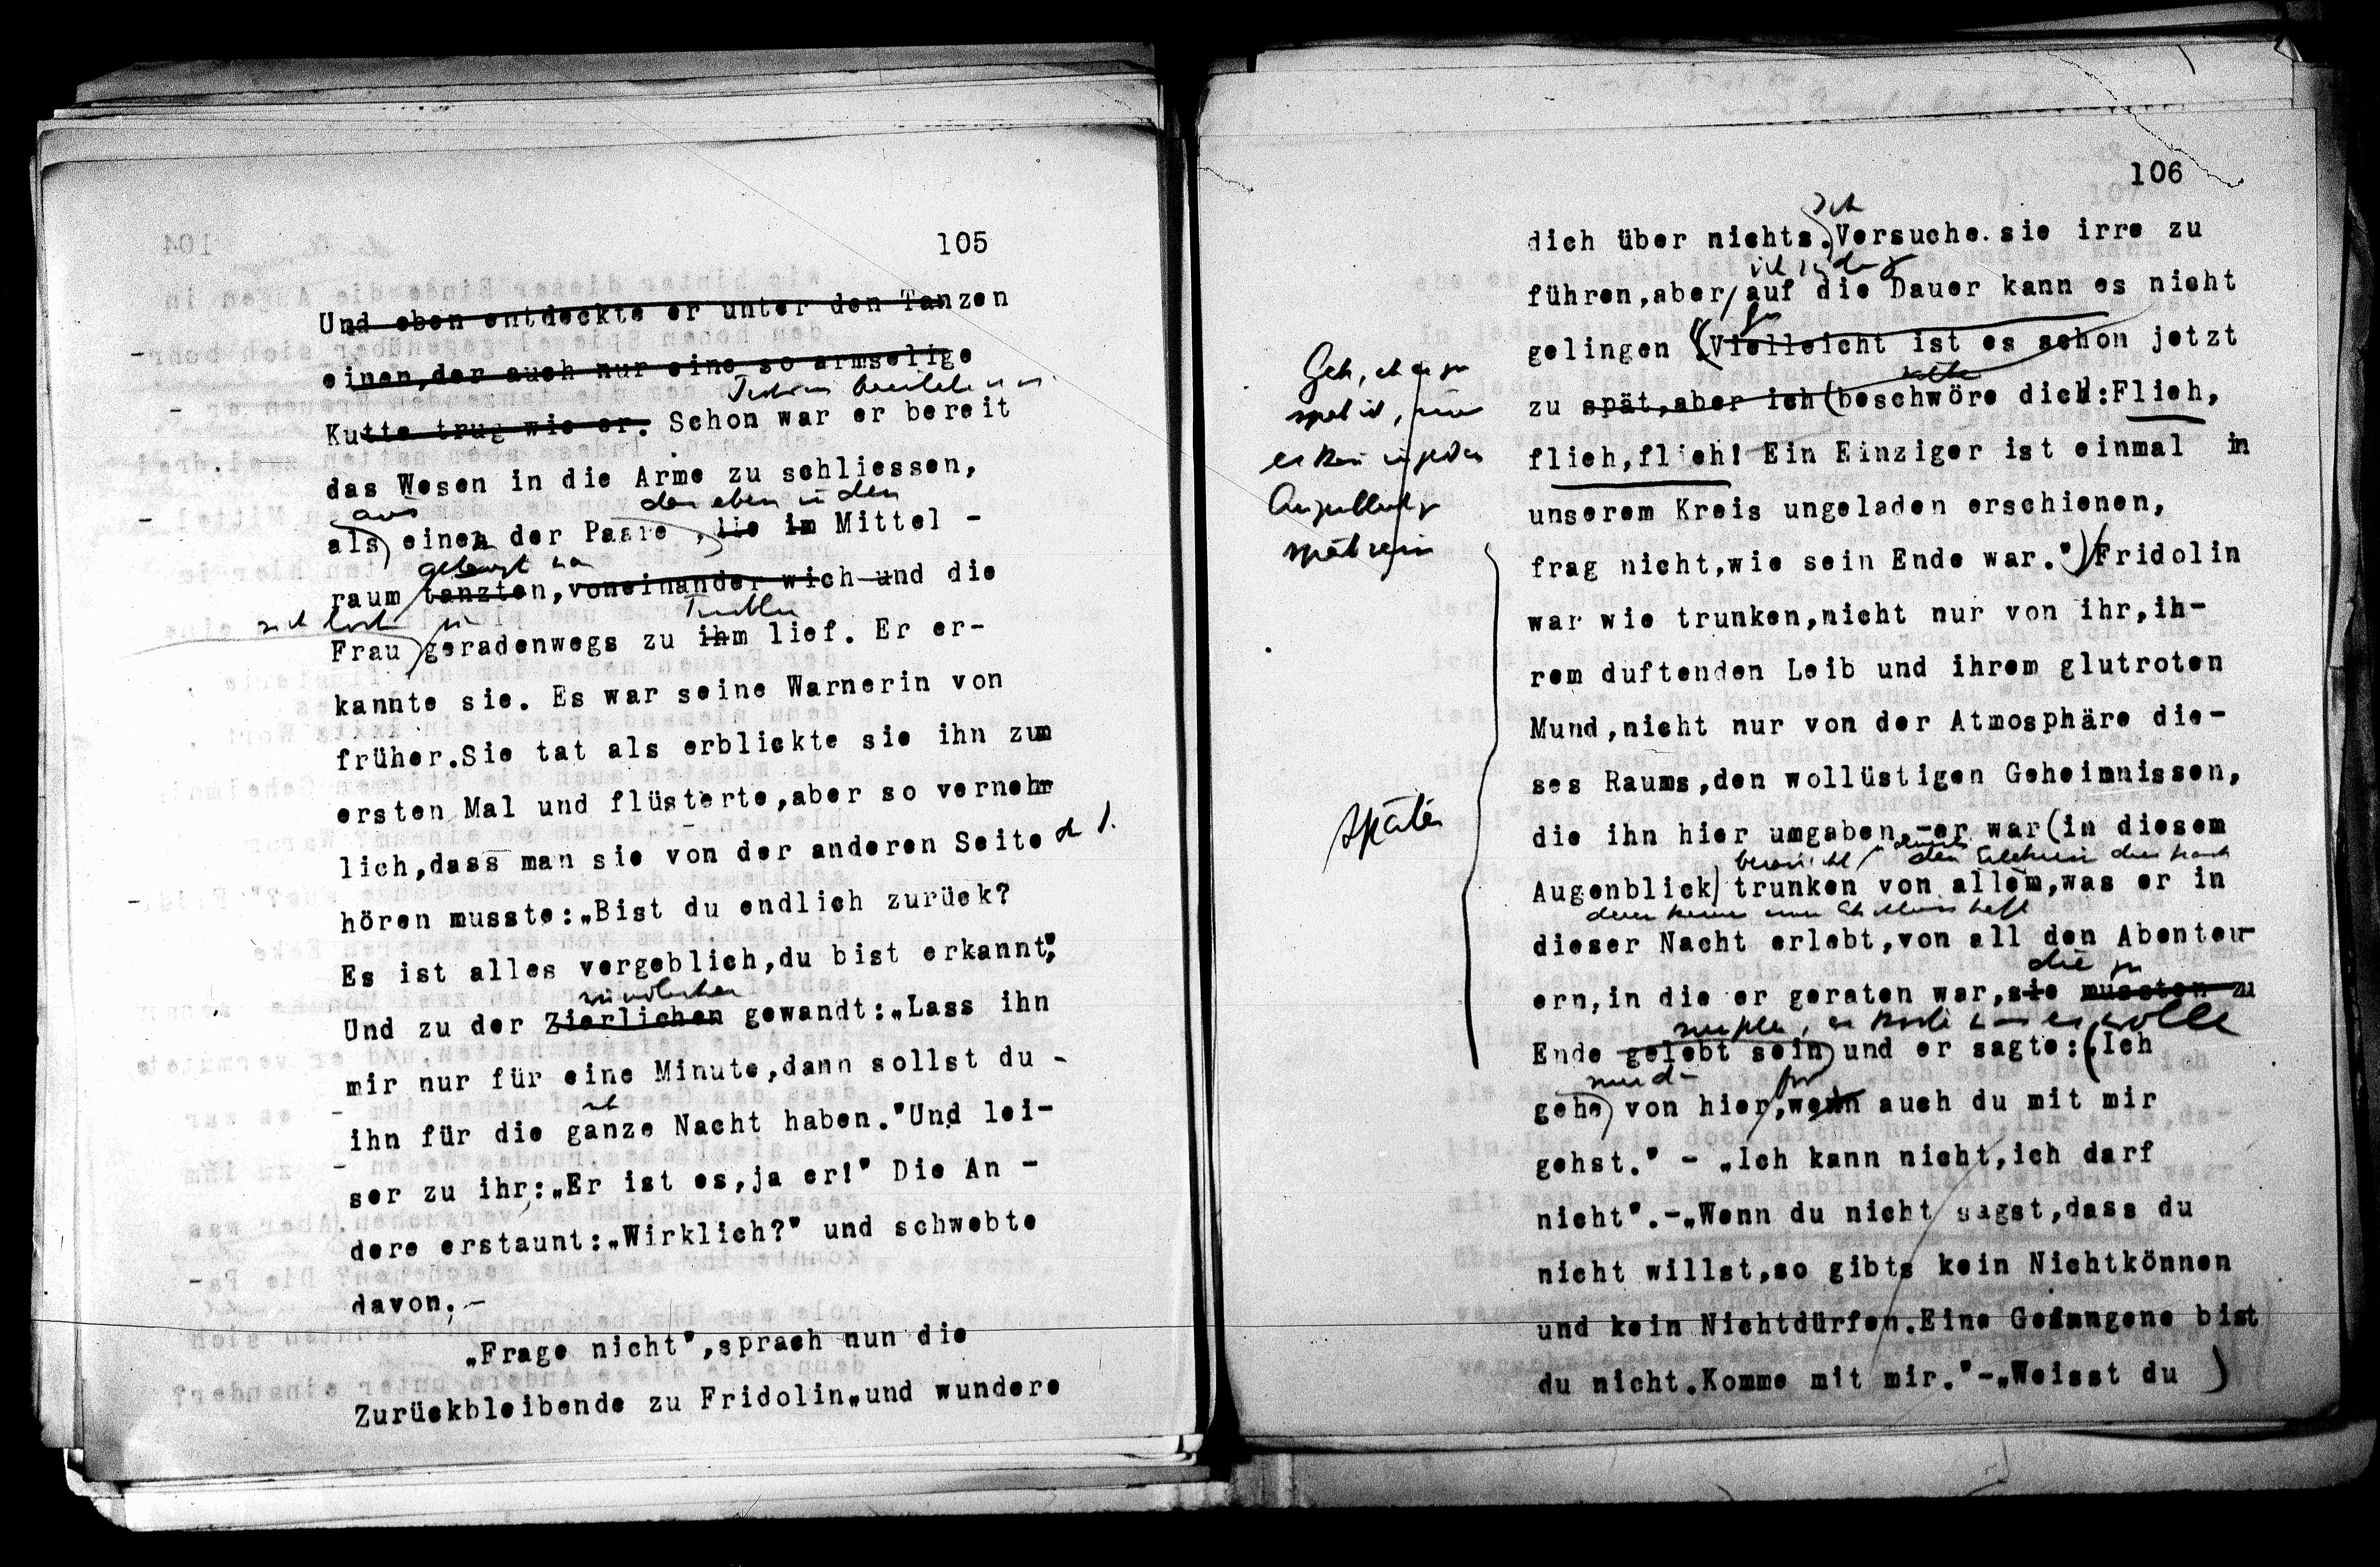 105
Und eben entdeckte er unter den Tanzen
einen,der auch nur eine so armselige
Kutte trug wie er. Schon war er bereit
das Wesen in die Arme zu schliessen,
aus
der eben in den
als einen der Paare , die im Mittel -
raum tanzten,voneinander wich und die
sich
Frau geradenwegs zu ihm lief. Er er-
kannte sie. Es war seine Warnerin von
früher.Sie tat als erblickte sie ihn zum
ersten Mal und flüsterte,aber so vernehm
lich,dass man sie von der anderen Seite
hören musste:„Bist du endlich zurück?
Es ist alles vergeblich,du bist erkannt."
Und zu der Zierlichen gewandt:„Lass ihn
mir nur für eine Minute,dann sollst du -
ihn für die ganze Nacht haben."Und lei-
ser zu ihr:„Er ist es,ja er!" Die An -
dere erstaunt:„Wirklich?" und schwebte
davon. -
„Frage nicht",sprach nun die
Zurückbleibende zu Fridolin„und wundere
106
Ich
dich über nichts.Versuche sie irre zu
führen,aber auf die Dauer kann es nicht
gelingen Vielleicht ist es schon jetzt
zu spät,aber ich beschwöre dich:Flieh,
flieh,flieh! Ein Einziger ist einmal in
unserem Kreis ungeladen erschienen,
frag nicht,wie sein Ende war." Fridolin
war wie trunken,nicht nur von ihr,ih-
rem duftenden Leib und ihrem glutroten
Mund,nicht nur von der Atmosphäre die-
ses Raums,den wollüstigen Geheimnissen,
die ihn hier umgaben,-er war (in diesem
Augenblick) trunken von allem,was er in
dieser Nacht erlebt,von all den Abenteu-
die
ern,in die er geraten war,sie mussten zu
wolle
Ende gelebt sein und er sagte:„Ich
gehe von hier,wenn auch du mit mir
gehst." - „Ich kann nicht,ich darf
nicht".-„Wenn du nicht sagst,dass du
nicht willst,so gibts kein Nichtkönnen
und kein Nichtdürfen.Eine Gefangene bist
du nicht.Komme mit mir."-„Weisst du
Geh, eh es zu
spät ist,
es kann in jedem
Augenblick zu
spät sein
später